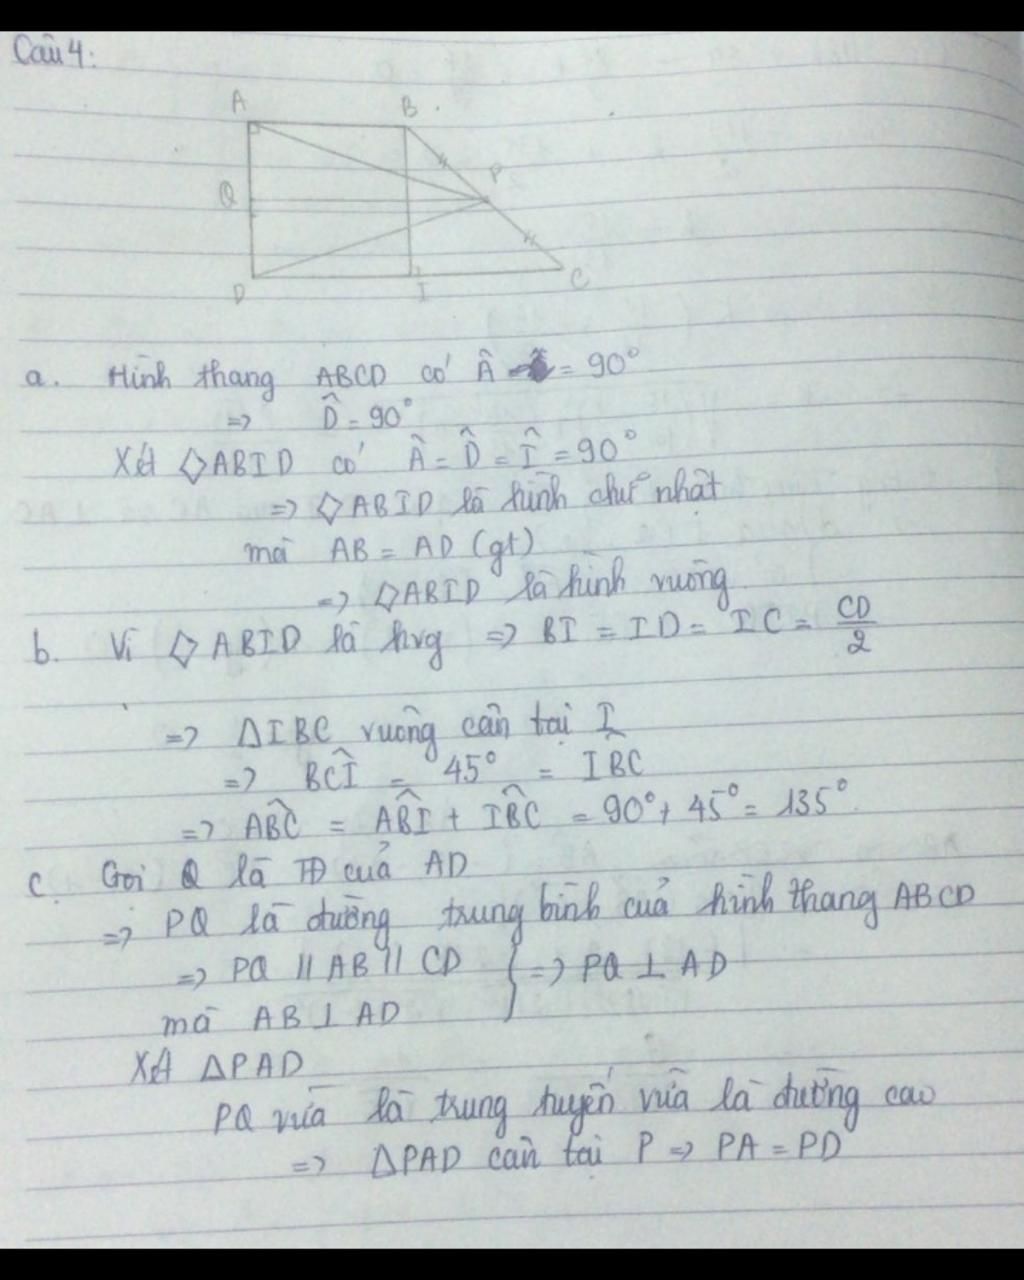 Câu 4:
A B
Q P
D I C
a. Hình thang ABCD có Â = 90°
=> D̂ = 90°
Xét ◇ABID có Â = D̂ = Î = 90°
=> ◇ABID là hình chữ nhật
mà AB = AD (gt)
=> ◇ABID là hình vuông
b. Vì ◇ABID là hvg => BI = ID = IC = CD/2
=> ΔIBC vuông cân tại I
=> BĈI = 45° = IBC
=> AB̂C = AB̂I + IB̂C = 90° + 45° = 135°
c. Gọi Q là TĐ của AD
=> PQ là đường trung bình của hình thang ABCD
=> PQ // AB // CD } => PQ ⊥ AD
mà AB ⊥ AD
Xét ΔPAD
PQ vừa là trung tuyến vừa là đường cao
=> ΔPAD cân tại P => PA = PD